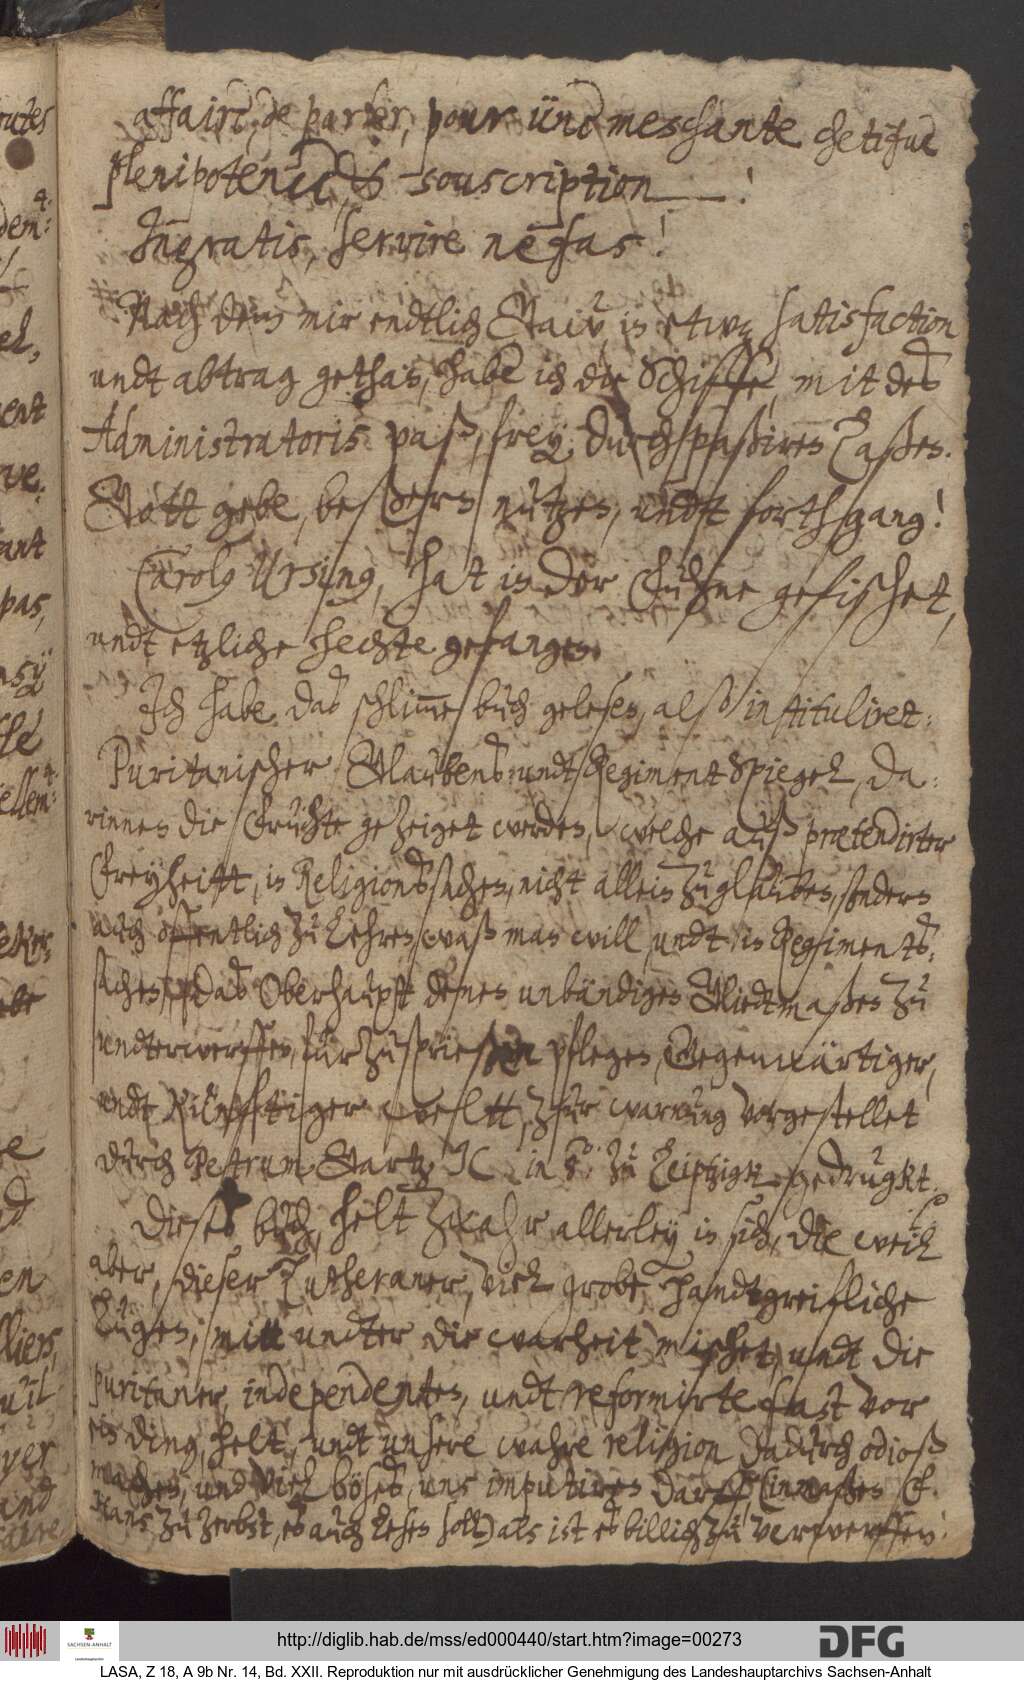 affaire, de parler, pour üne meschante chetifue
plenipotence, & souscription ——!
Ingratis, servire nefas!
Nach dem mir endtlich Gaiu, in etwaß satisfaction
undt abtrag gethan, habe ich die Schiffe, mit des
Administratoris paß, frey durchpaßiren laßen.
Gott gebe, beßern nutzen, undt forthgang!
Carolus Ursinus, hat in der Fuhne gefischet,
undt etzliche hechte gefangen.
Ich habe das schlimme buch gelesen, also intituliret:
Puritanischer Glaubens: undt Regiment Spiegel, da:
rinnen die früchte gezeiget werden, welche auß prætendirter
Freyheitt, in Religionssachen, nicht allein zu glauben, sondern
auch öffentlich zu lehren, waß man will, undt in Regiments:
sachen, das Oberhaupt denen unbändigen Gliedtmaßen zu
undterwerffen, fürzusprießen pflegen, Gegenwärtiger,
undt Künfftiger weltt, zur warnung vorgestellet
durch Petrum Gartz in 8° zu Leiptzigk gedrugkt.
Dieses buch, helt zwahr allerley in sich, die weil
aber, dieser Lutheraner, viel grobe, handtgreifliche
Lügen, mitt undter die warheit mischet, undt die
puritaner, independenten, undt reformirte fast vor
ein ding helt, undt unsere wahre religion dadurch odioß
machen, und viel böses, uns imputiren darff, (inmaßen E.
Hans zu Zerbst, es auch lesen soll) als ist es billich zu verwerffen!
http://diglib.hab.de/mss/ed000440/start.htm?image=00273
SACHSEN-ANHALT
DFG
LASA, Z 18, A 9b Nr. 14, Bd. XXII. Reproduktion nur mit ausdrücklicher Genehmigung des Landeshauptarchivs Sachsen-Anhalt